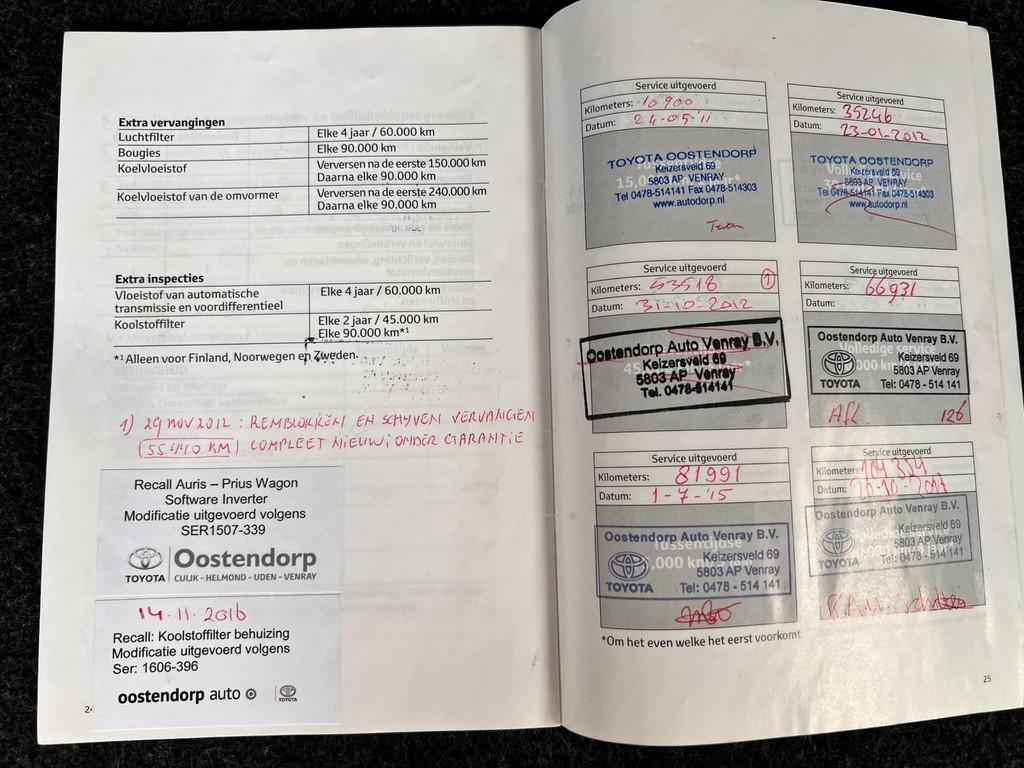 Extra vervangingen
Luchtfilter Elke 4 jaar / 60.000 km
Bougies Elke 90.000 km
Koelvloeistof Verversen na de eerste 150.000 km
Daarna elke 90.000 km
Koelvloeistof van de omvormer Verversen na de eerste 240.000 km
Daarna elke 90.000 km
Extra inspecties
Vloeistof van automatische Elke 4 jaar / 60.000 km
transmissie en voordifferentieel
Koolstoffilter Elke 2 jaar / 45.000 km
Elke 90.000 km*1
*1 Alleen voor Finland, Noorwegen en Zweden.
1) 29 NOV 2012 : REMBLOKKEN EN SCHYVEN VERVANGEN
(55.440 KM) COMPLEET NIEUW; ONDER GARANTIE
Recall Auris – Prius Wagon
Software Inverter
Modificatie uitgevoerd volgens
SER1507-339
TOYOTA Oostendorp
CUIJK - HELMOND - UDEN - VENRAY
14-11-2016
Recall: Koolstoffilter behuizing
Modificatie uitgevoerd volgens
Ser: 1606-396
oostendorp auto TOYOTA
Service uitgevoerd
Kilometers: 16900
Datum: 24-05-11
TOYOTA OOSTENDORP
Keizersveld 69
5803 AP VENRAY
Tel 0478-514141 Fax 0478-514303
www.autodorp.nl
Service uitgevoerd
Kilometers: 35246
Datum: 23-01-2012
TOYOTA OOSTENDORP
Keizersveld 69
5803 AP VENRAY
Tel 0478-514141 Fax 0478-514303
www.autodorp.nl
Service uitgevoerd
Kilometers: 53518 1
Datum: 31-10-2012
Oostendorp Auto Venray B.V.
Keizersveld 69
5803 AP Venray
Tel. 0478-514141
Service uitgevoerd
Kilometers: 66931
Datum:
Oostendorp Auto Venray B.V.
Keizersveld 69
5803 AP Venray
TOYOTA Tel: 0478 - 514 141
126
Service uitgevoerd
Kilometers: 81991
Datum: 1-7-'15
Oostendorp Auto Venray B.V.
Keizersveld 69
5803 AP Venray
TOYOTA Tel: 0478 - 514 141
Service uitgevoerd
Kilometers:
Datum:
Oostendorp Auto Venray B.V.
Keizersveld 69
5803 AP Venray
TOYOTA Tel: 0478 - 514 141
*Om het even welke het eerst voorkomt
25